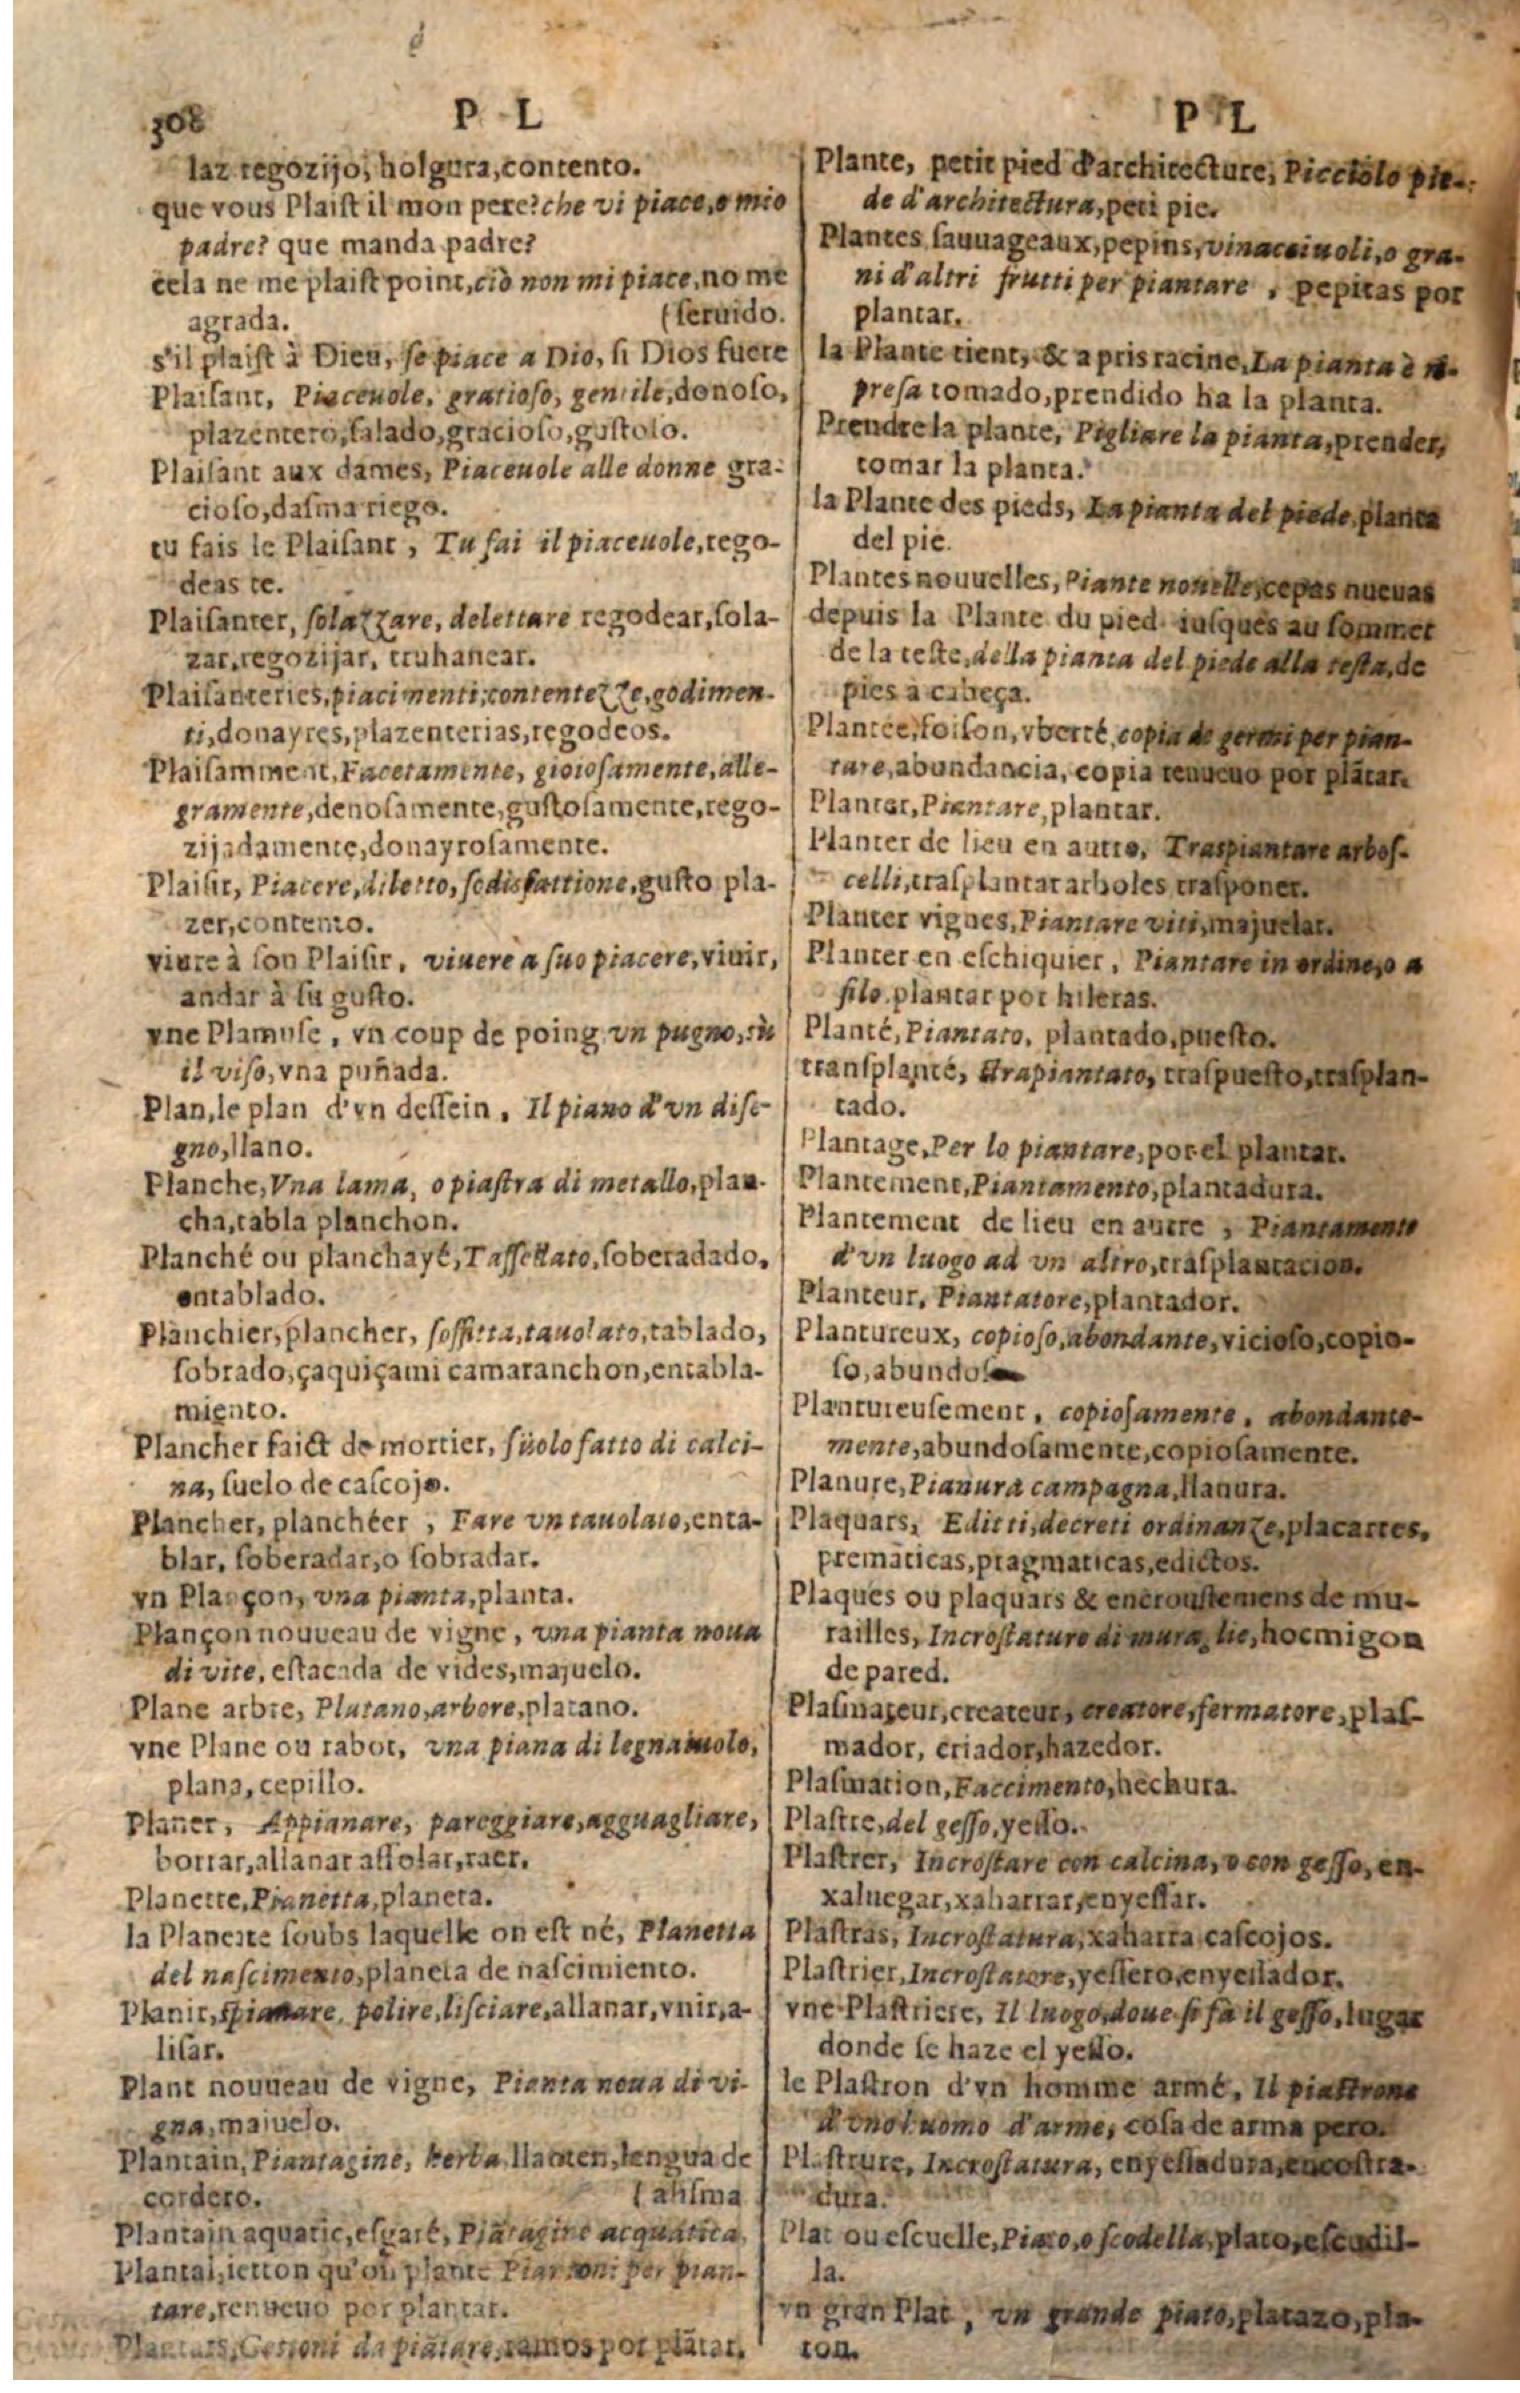 308
P L
laz regozijo, holgura, contento.
que vous Plaist il mon pere? che vi piace, o mio
padre? que manda padre?
cela ne me plaist point, ciò non mi piace, no me
agrada. (seruido.
s'il plaist à Dieu, se piace a Dio, si Dios fuere
Plaisant, Piaceuole, gratioso, gentile, donoso,
plazentero, salado, gracioso, gustoso.
Plaisant aux dames, Piaceuole alle donne gra-
cioso, dasma riego.
tu fais le Plaisant, Tu fai il piaceuole, rego-
deas te.
Plaisanter, solazzare, delettare regodear, sola-
zar, regozijar, truhanear.
Plaisanteries, piacimenti, contentezze, godimen-
ti, donayres, plazenterias, regodeos.
Plaisamment, Facetamente, gioiosamente, alle-
gramente, denosamente, gustosamente, rego-
zijadamente, donayrosamente.
Plaisir, Piacere, diletto, sodisfattione, gusto pla-
zer, contento.
viure à son Plaisir, viuere a suo piacere, viuir,
andar à su gusto.
vne Plamuse, vn coup de poing, vn pugno, sù
il viso, vna puñada.
Plan, le plan d'vn dessein, Il piano d'vn dise-
gno, llano.
Planche, Vna lama, o piastra di metallo, plan-
cha, tabla planchon.
Planché ou planchayé, Tassellato, soberadado,
entablado.
Planchier, plancher, soffitta, tauolato, tablado,
sobrado, çaquiçami camaranchon, entabla-
miento.
Plancher faict de mortier, süolo fatto di calci-
na, suelo de cascojo.
Plancher, planchéer, Fare vn tauolato, enta-
blar, soberadar, o sobradar.
vn Plançon, vna pianta, planta.
Plançon nouueau de vigne, vna pianta noua
di vite, estacada de vides, majuelo.
Plane arbre, Platano, arbore, platano.
vne Plane ou rabot, vna piana di legnaiuolo,
plana, cepillo.
Planer, Appianare, pareggiare, agguagliare,
borrar, allanar assolar, raer.
Planette, Pianetta, planeta.
la Planette soubs laquelle on est né, Planetta
del nascimento, planeta de nascimiento.
Planir, spianare, polire, lisciare, allanar, vnir, a-
lisar.
Plant nouueau de vigne, Pianta noua di vi-
gna, maiuelo.
Plantain, Piantagine, herba, llanten, lengua de
cordero. (alisma
Plantain aquatic, esgaré, Piãtagine acquatica,
Plantal, ietton qu'on plante Piantoni per pian-
tare, renueuo por plantar.
Plantars, Gettoni da piãtare, ramos por plãtar.
P L
Plante, petit pied d'architecture, Picciolo pie-
de d'architectura, peti pie.
Plantes sauuageaux, pepins, vinacciuoli, o gra-
ni d'altri frutti per piantare, pepitas por
plantar.
la Plante tient, & a pris racine, La pianta è ri-
presa tomado, prendido ha la planta.
Prendre la plante, Pigliare la pianta, prender,
tomar la planta.
la Plante des pieds, La pianta del piede, planta
del pie.
Plantes nouuelles, Piante nouelle, cepas nueuas
depuis la Plante du pied iusques au sommet
de la teste, della pianta del piede alla testa, de
pies à cabeça.
Plantée, foison, vberté, copia de germi per pian-
tare, abundancia, copia renueuo por plãtar.
Planter, Piantare, plantar.
Planter de lieu en autre, Traspiantare arbos-
celli, trasplantar arboles trasponer.
Planter vignes, Piantare viti, majuelar.
Planter en eschiquier, Piantare in ordine, o a
filo, plantar por hileras.
Planté, Piantato, plantado, puesto.
transplanté, strapiantato, traspuesto, trasplan-
tado.
Plantage, Per lo piantare, por el plantar.
Plantement, Piantamento, plantadura.
Plantement de lieu en autre, Piantamento
d'vn luogo ad vn altro, trasplantacion.
Planteur, Piantatore, plantador.
Plantureux, copioso, abondante, vicioso, copio-
so, abundoso
Plantureusement, copiosamente, abondante-
mente, abundosamente, copiosamente.
Planure, Pianura campagna, llanura.
Plaquars, Editti, decreti ordinanze, placartes,
prematicas, pragmaticas, edictos.
Plaques ou plaquars & encroustemens de mu-
railles, Incrostature di muraglie, hoemigon
de pared.
Plasmateur, createur, creatore, fermatore, plas-
mador, criador, hazedor.
Plasmation, Faccimento, hechura.
Plastre, del gesso, yesso.
Plastrer, Incrostare con calcina, o con gesso, en-
xaluegar, xaharrar, enyessar.
Plastras, Incrostatura, xaharra cascojos.
Plastrier, Incrostatore, yessero, enyessador.
vne Plastriere, Il luogo, doue si fa il gesso, lugar
donde se haze el yesso.
le Plastron d'vn homme armé, Il piastrone
d'vno huomo d'arme, cosa de arma pero.
Plastrure, Incrostatura, enyessadura, encostra-
dura.
Plat ou escuelle, Piato, o scodella, plato, escudil-
la.
vn gran Plat, vn grande piato, platazo, pla-
ton.